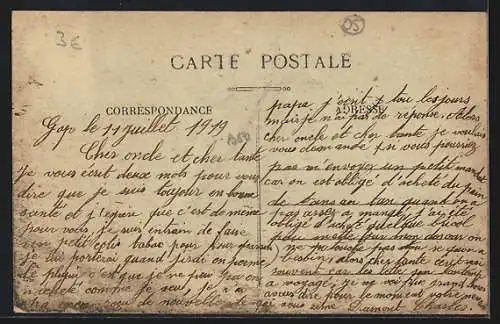 3€
OS
CARTE POSTALE
CORRESPONDANCE
ADRESSE
Gap le 11 juillet 1919
Cher oncle et cher tante
Je vous écrit deux mots pour vous
dire que je suis toujour en bonne
santé et j'espère que c'est de même
pour vous, je suis entrain de faire
un petit colis tabac pour
je lui porterai quand j'irai en
le plus c'est que je ne peu pas en
acheté comme je veu, je n'ai
encore de nouvelle de
papa, j'écrit tou les jours
mais je n'ai pas de réponse. Alors
cher oncle et cher tante je voulais
vous demandé si vous pourriez
pas m'envoyer un petit mandat
car on est obligé d'acheté du pain
quand on a
pas assez a mangé, j'ai été
obligé d'acheté quelque
besoin, alors cher tante
souvent car les
a voyagé, je ne voi pas grand chose
a vous dire pour le moment votre neveu
qui vous aime Dumont Charles.